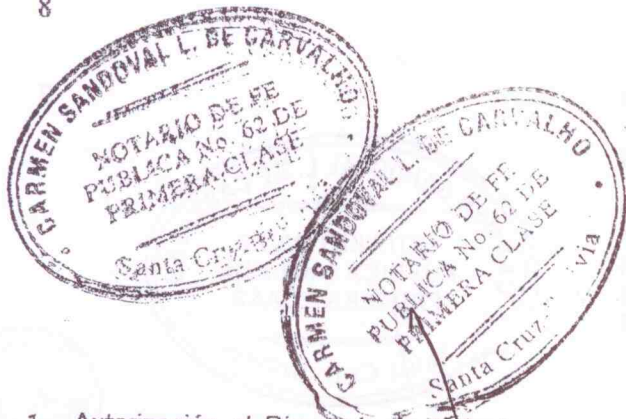 8
CARMEN SANDOVAL L. DE CARVALHO
NOTARIO DE FE
PUBLICA No. 62 DE
PRIMERA CLASE
Santa Cruz
CARMEN SANDOVAL L. DE CARVALHO
NOTARIO DE FE
PUBLICA No. 62 DE
PRIMERA CLASE
Santa Cruz
1. Autorización al